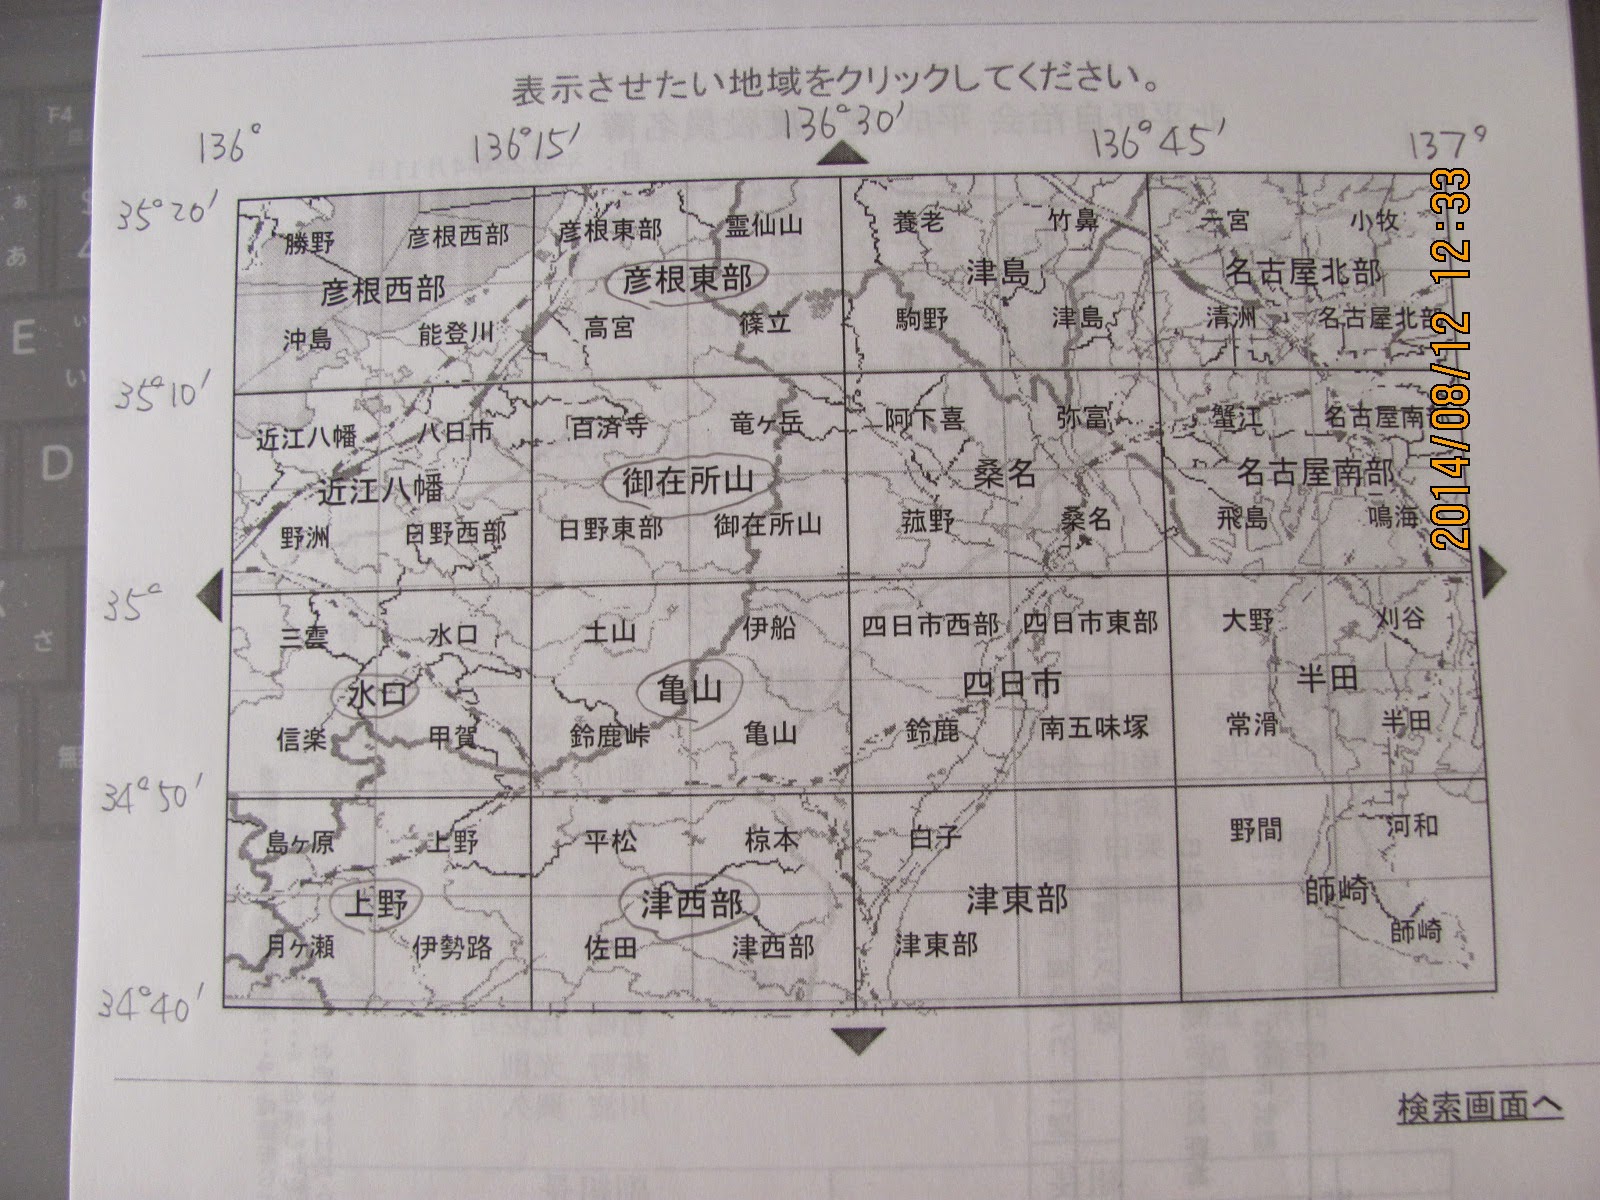 表示させたい地域をクリックしてください。
136° 136°15′ 136°30′ 136°45′ 137°
35°20′
勝野 彦根西部 彦根東部 霊仙山 養老 竹鼻 一宮 小牧
彦根西部 彦根東部 津島 名古屋北部
沖島 能登川 高宮 篠立 駒野 津島 清洲 名古屋北部
35°10′
近江八幡 八日市 百済寺 竜ヶ岳 阿下喜 弥富 蟹江 名古屋南部
近江八幡 御在所山 桑名 名古屋南部
野洲 日野西部 日野東部 御在所山 菰野 桑名 飛島 鳴海
35°
三雲 水口 土山 伊船 四日市西部 四日市東部 大野 刈谷
水口 亀山 四日市 半田
信楽 甲賀 鈴鹿峠 亀山 鈴鹿 南五味塚 常滑 半田
34°50′
島ヶ原 上野 平松 椋本 白子 野間 河和
上野 津西部 津東部 師崎
月ヶ瀬 伊勢路 佐田 津西部 津東部 師崎
34°40′
検索画面へ
2014/08/12 12:33
F4
E
D
あ
い
さ